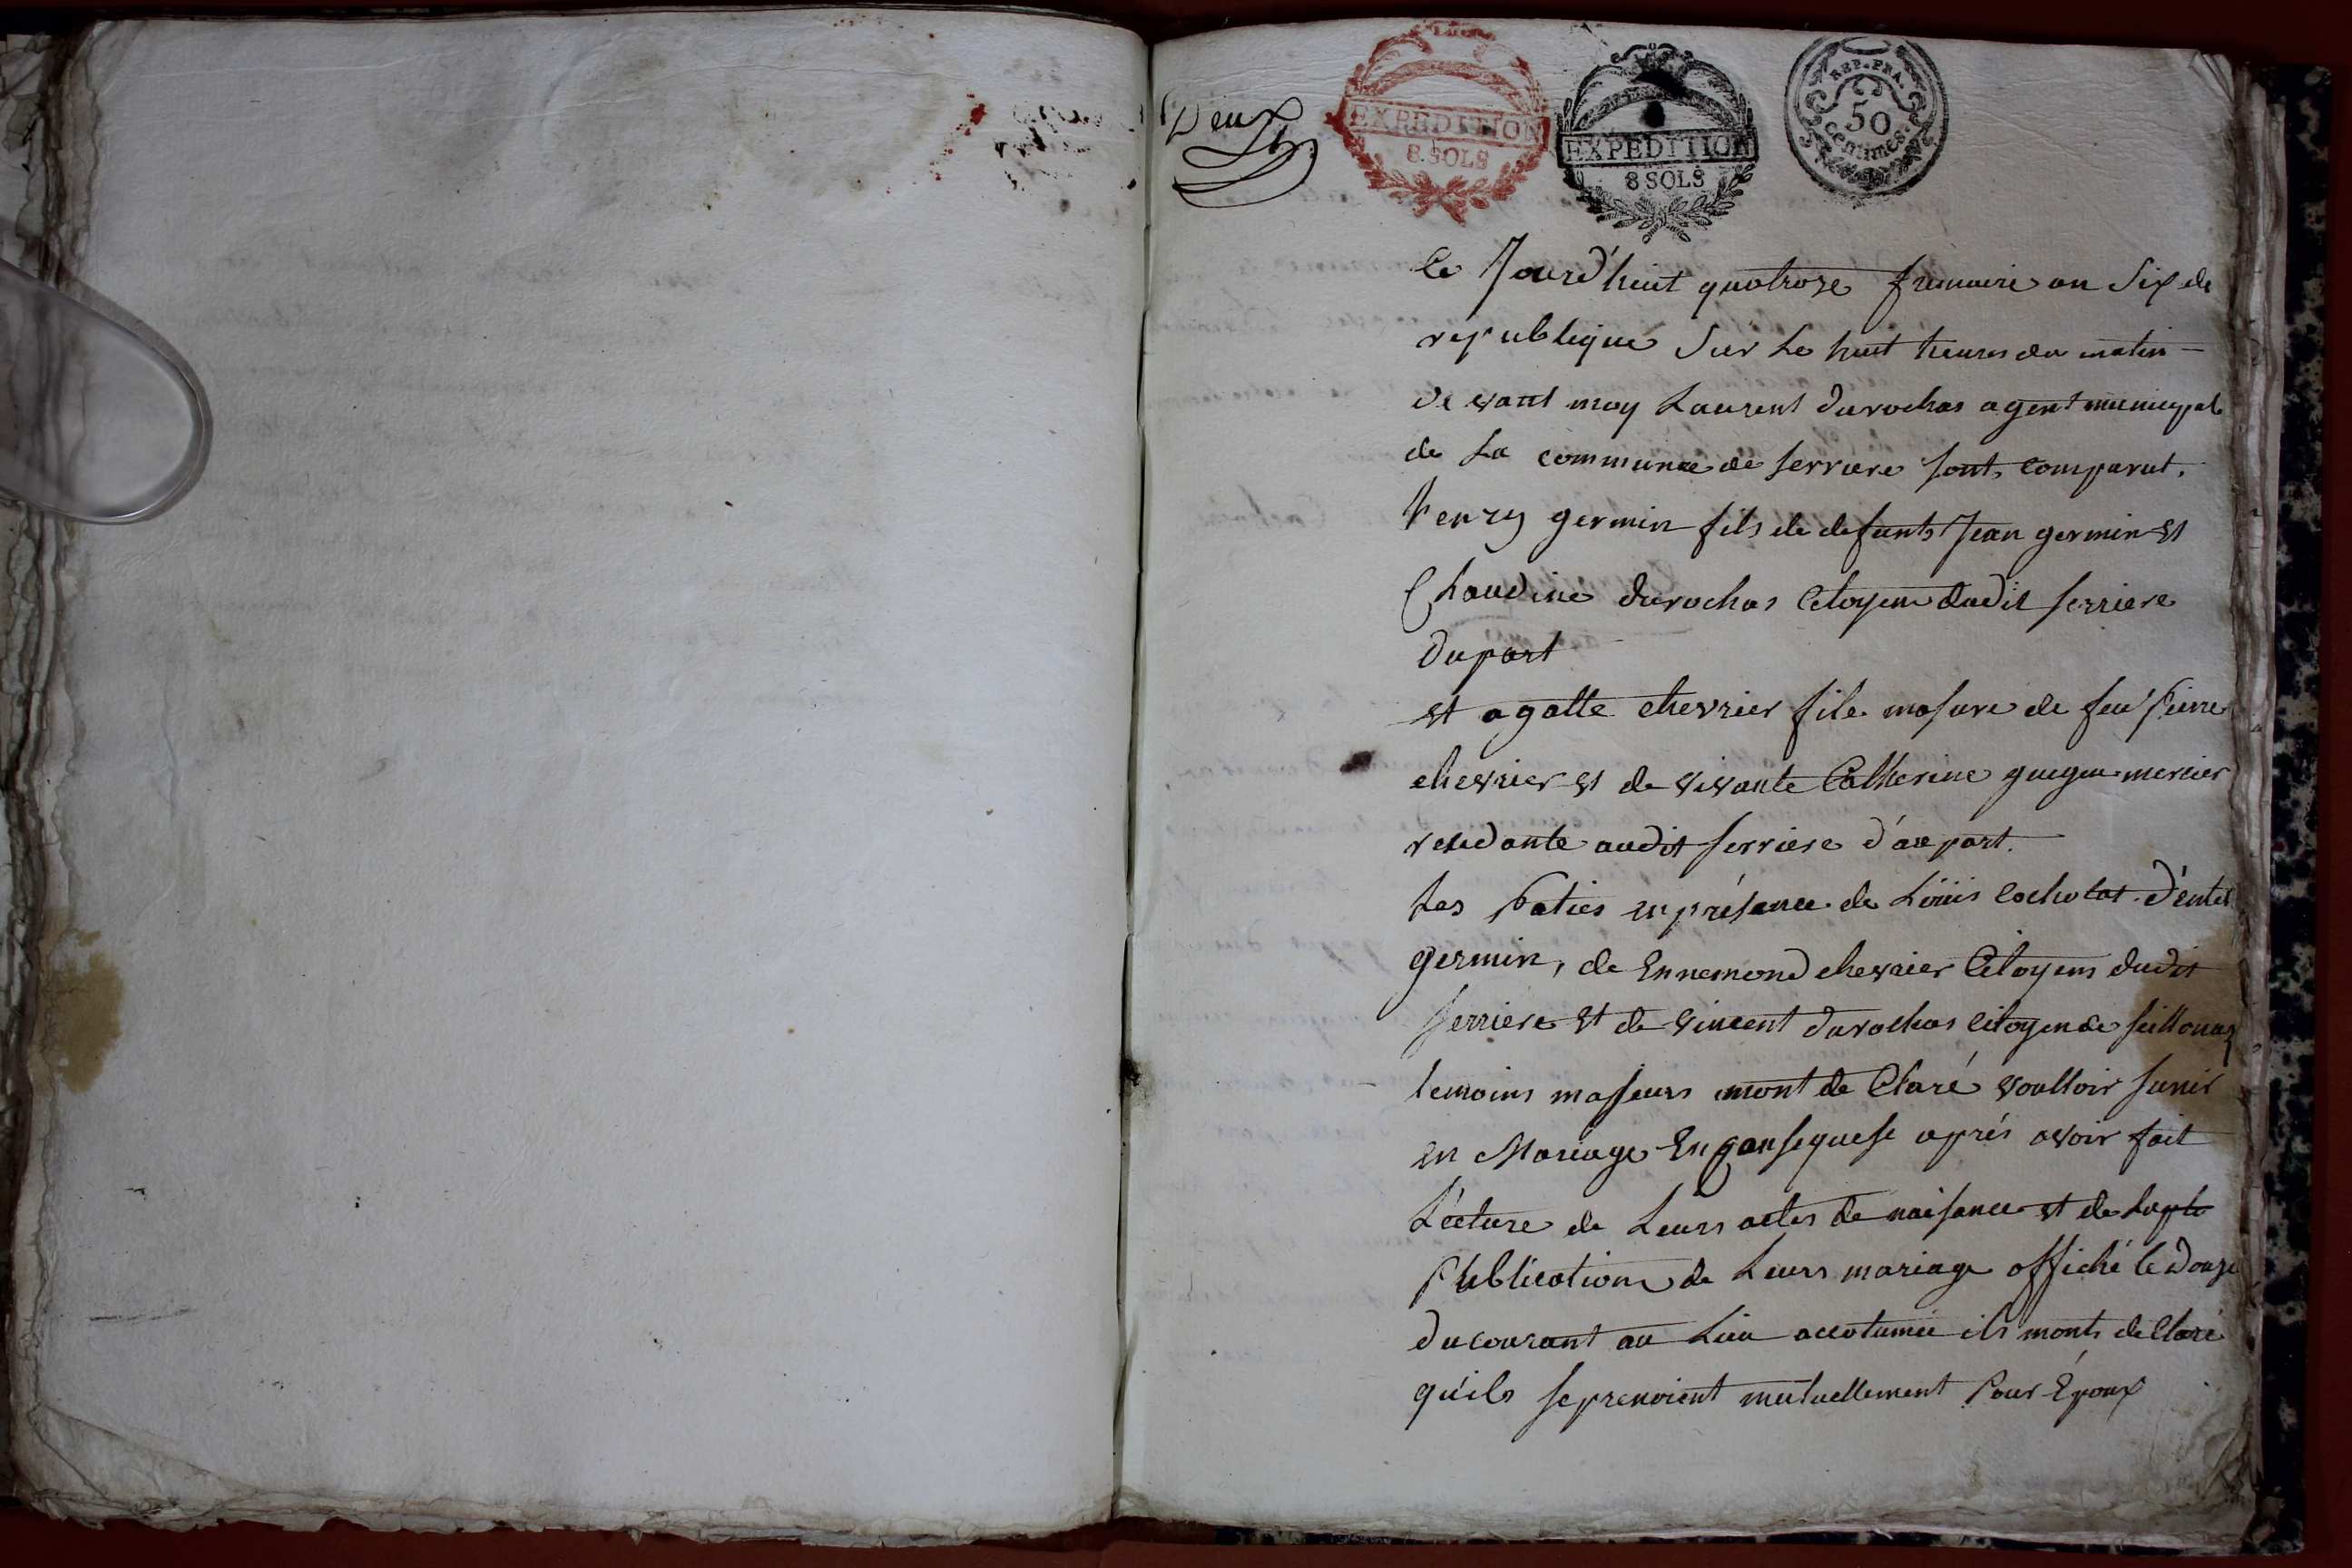 Deux
EXPEDITION
8 SOLS
EXPEDITION
8 SOLS
REP. FRA.
50
centimes.
Ce Jourd'huit quatroze frimaire an Six de
republique Sur Le huit heures du matin
de vant moy Laurent durochas agent municipal
de La commune de serriere sont comparut.
henry germin fils de defunts Jean germin et
Chaudine durochas Citoyen dudit serriere
du part
et agatte chevrier file majure de feu pierre
chevrier et de vivante Catherine guegue mercier
residante audit serriere d'au part.
Les paties en présence de Loüis cocholat d'entit
germin, de Ennemond chevrier Citoyens dudit
serriere et de vincent durochas citoyen de seillonaz
temoins majeurs mont de Claré voulloir sunir
en Mariage En consequese aprés avoir fait
Lécture de Leurs actes de naisance et de La pb
Publication de Leurs mariage affiché le Douze
du courant au Lieu accotumée ils monts de Claré
qu'ils se prenoient mutuellement Pour Époux